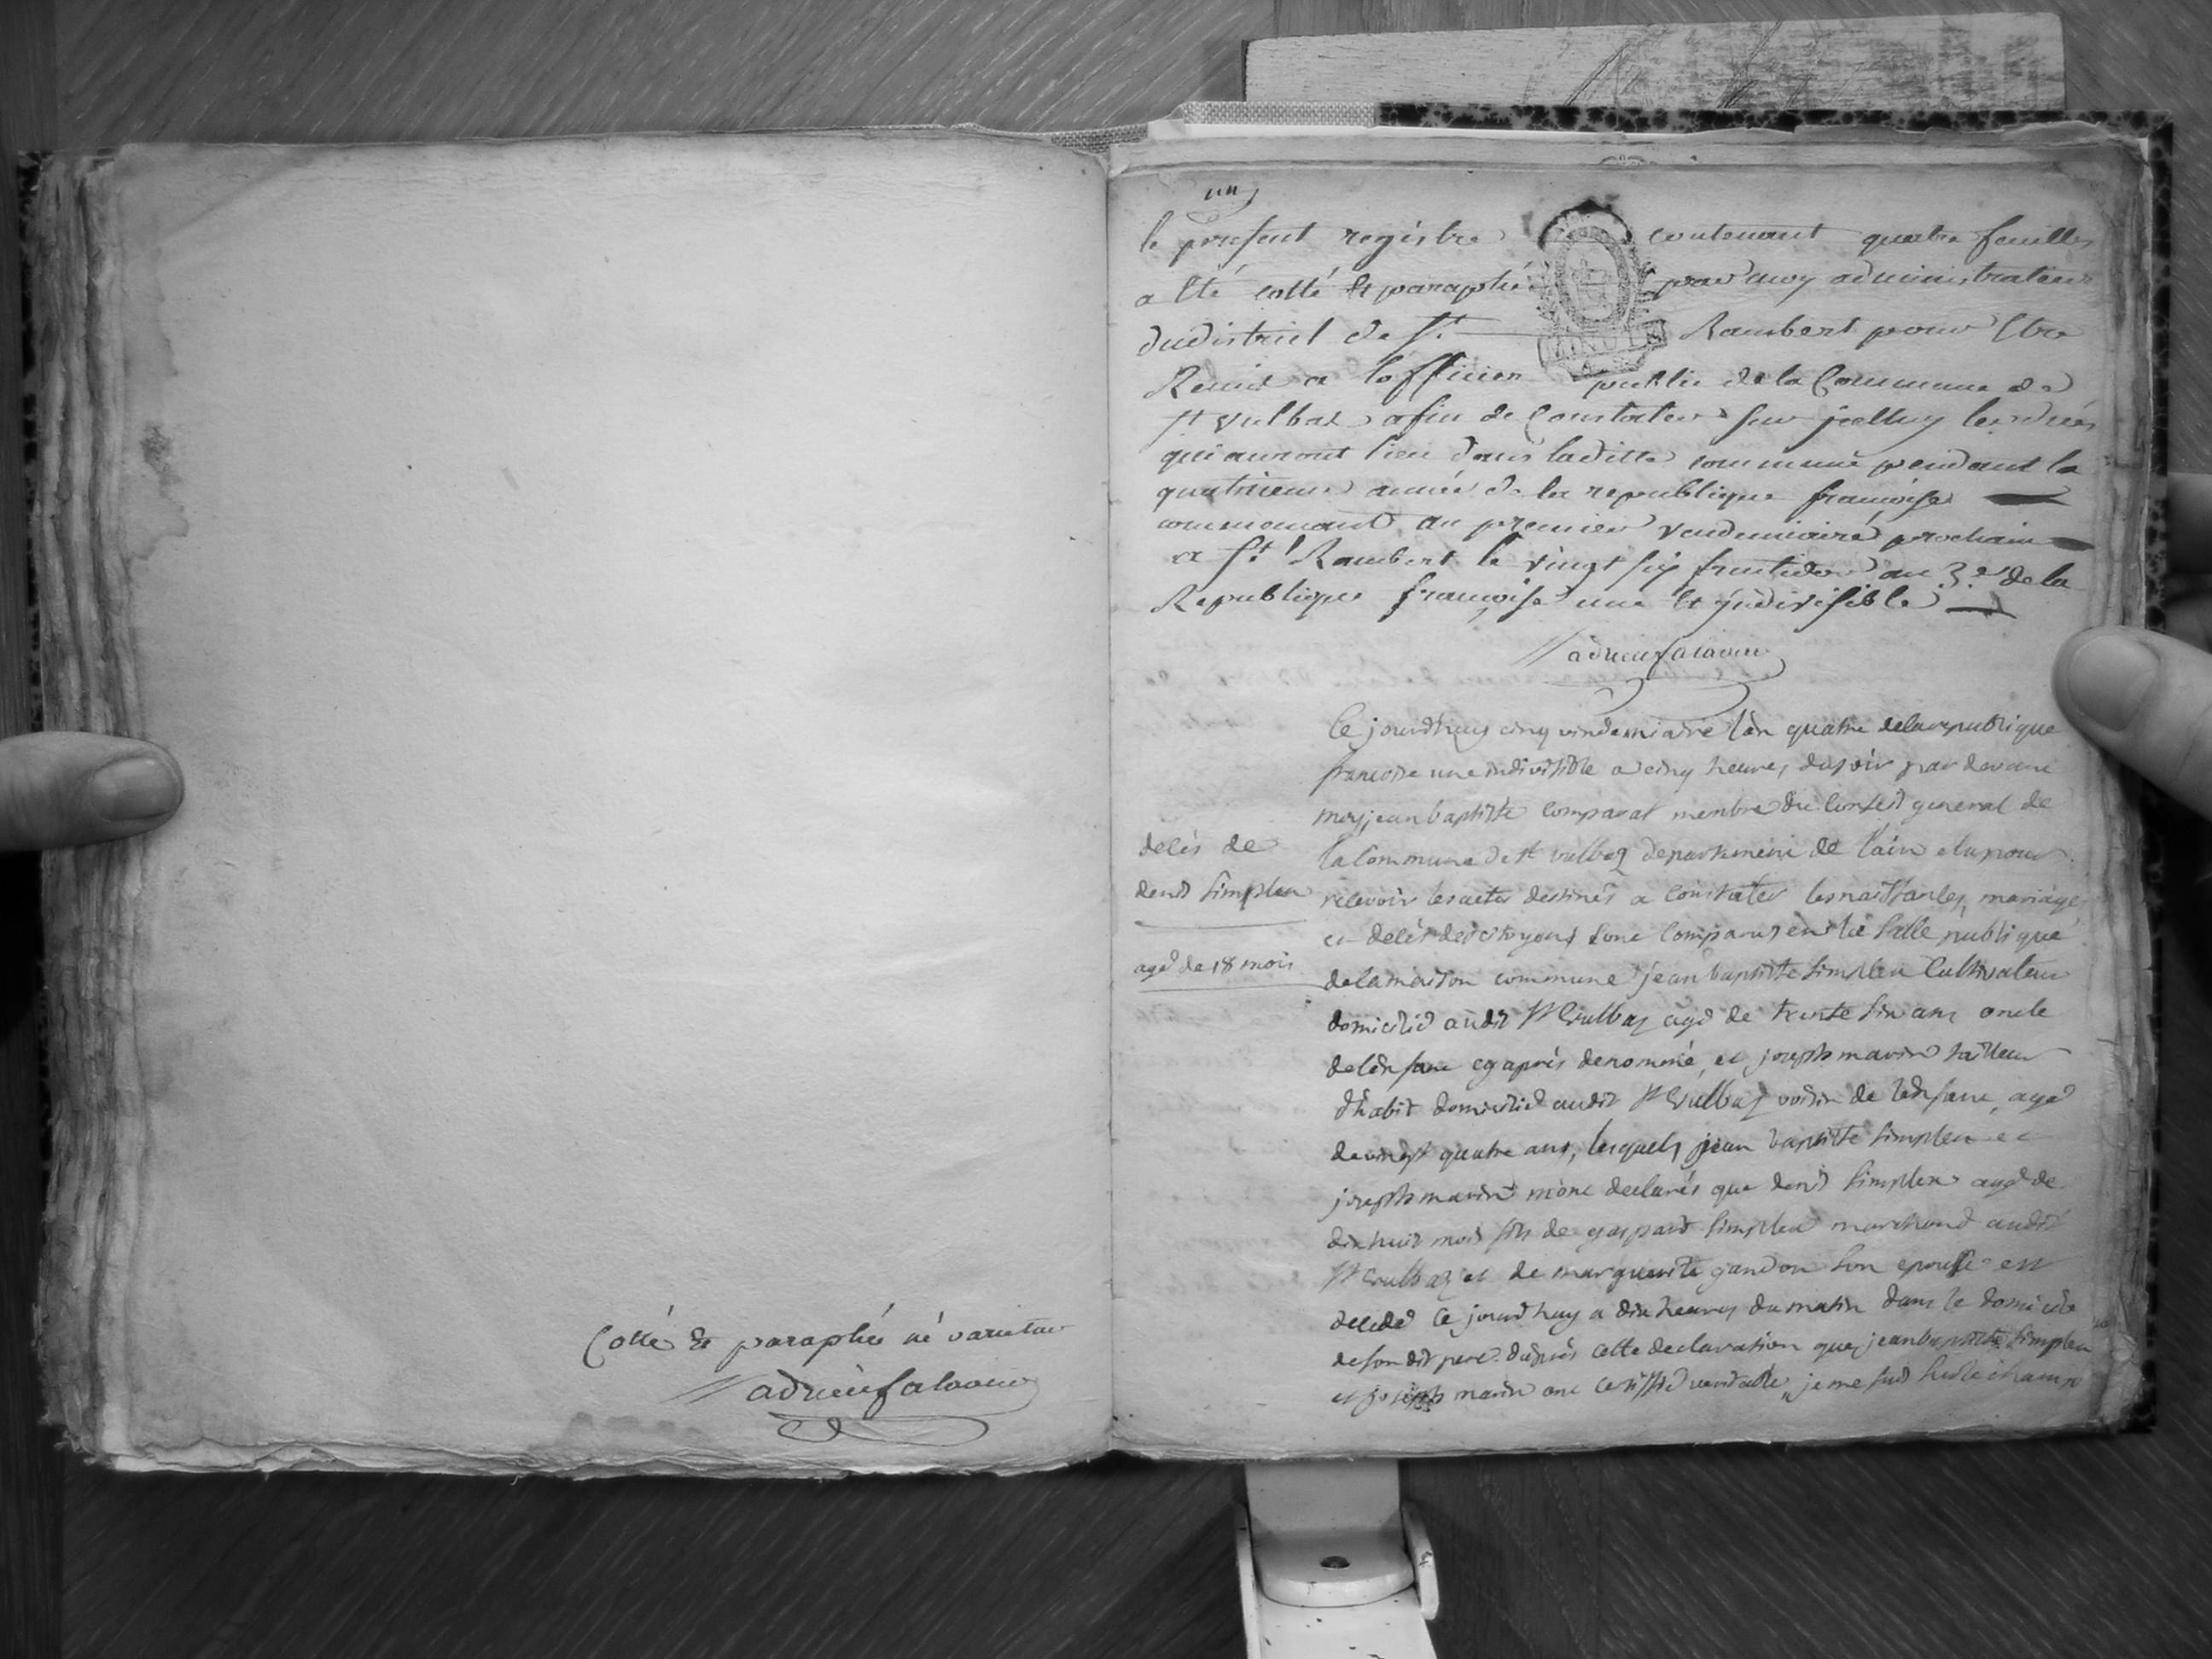 Cotté & paraphée né varietur
adrien salavin
un
le présent registre contenant quatre feuilles
a Eté cotté & paraphé par moy administrateur
du district de St Rambert pour Etre
Remis a l'officier public de la Commune de
St Vulbas afin de Constater sur jcelluy les décés
qui auront lieu dans laditte commune pendant la
quatrieme année de la republique françoise
commencant au premier vendemiaire prochain
a St Rambert le vingt six fructidor an 3e de la
Republique françoise une & jndivisible
adrien salavin
Ce jourdhuy cinq vindemiaire l'an quatre de la republique
francoise une indivisible a cinq heures du soir par devant
moy jean baptiste comparat membre du Conseil general de
la Commune de st vulbaz departement de l'ain elu pour
recevoir les actes destinés a constater les naissances, mariages
et decés des citoyens sont comparus en la salle publique
de la maison commune jean baptiste simplex Cultivateur
domicilié audit St Vulbas agé de trente six ans oncle
de l'enfant cy aprés denommé, et joseph marin tailleur
d'habit domicilié audit St Vulbas voisin de l'enfant, agé
de vingt quatre ans, lesquels jean baptiste simplex et
joseph marin m'ont declarés que denis simplex agé de
dix huit mois fils de gaspard simplex marchand audit
St Vulbas et de marguerite gandon son epouse est
decedé ce jourdhuy a dix heures du matin dans le domicile
de son dit pere. d'aprés cette declaration que jean baptiste simplex
et joseph marin ont certifié veritable, je me suis sur le champ
decés de
denis simplex
agé de 18 mois